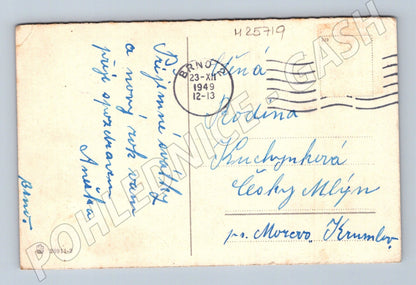 H25719
Příjemné svátky
a nový rok vám
přeje s pozdravem
Anežka
Brno.
BRNO 2
23-XII
1949
12-13
Ctěná
Rodina
Kuchyňková
Český Mlýn
ps. Morav. Krumlov.
POHLEDNICE - GASH